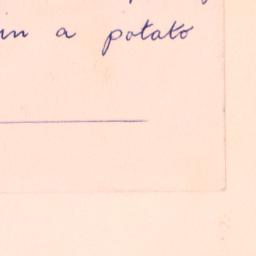 in a potato